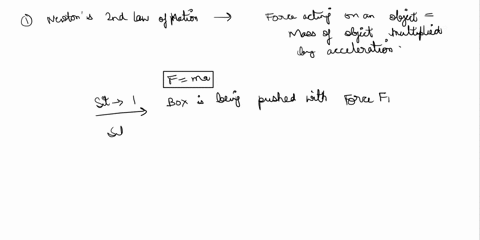 ① Newton's 2nd law of Motion → Force acting on an object =
Mass of object multiplied
by acceleration.
F = ma
Sit → 1 Box is being pushed with Force F1